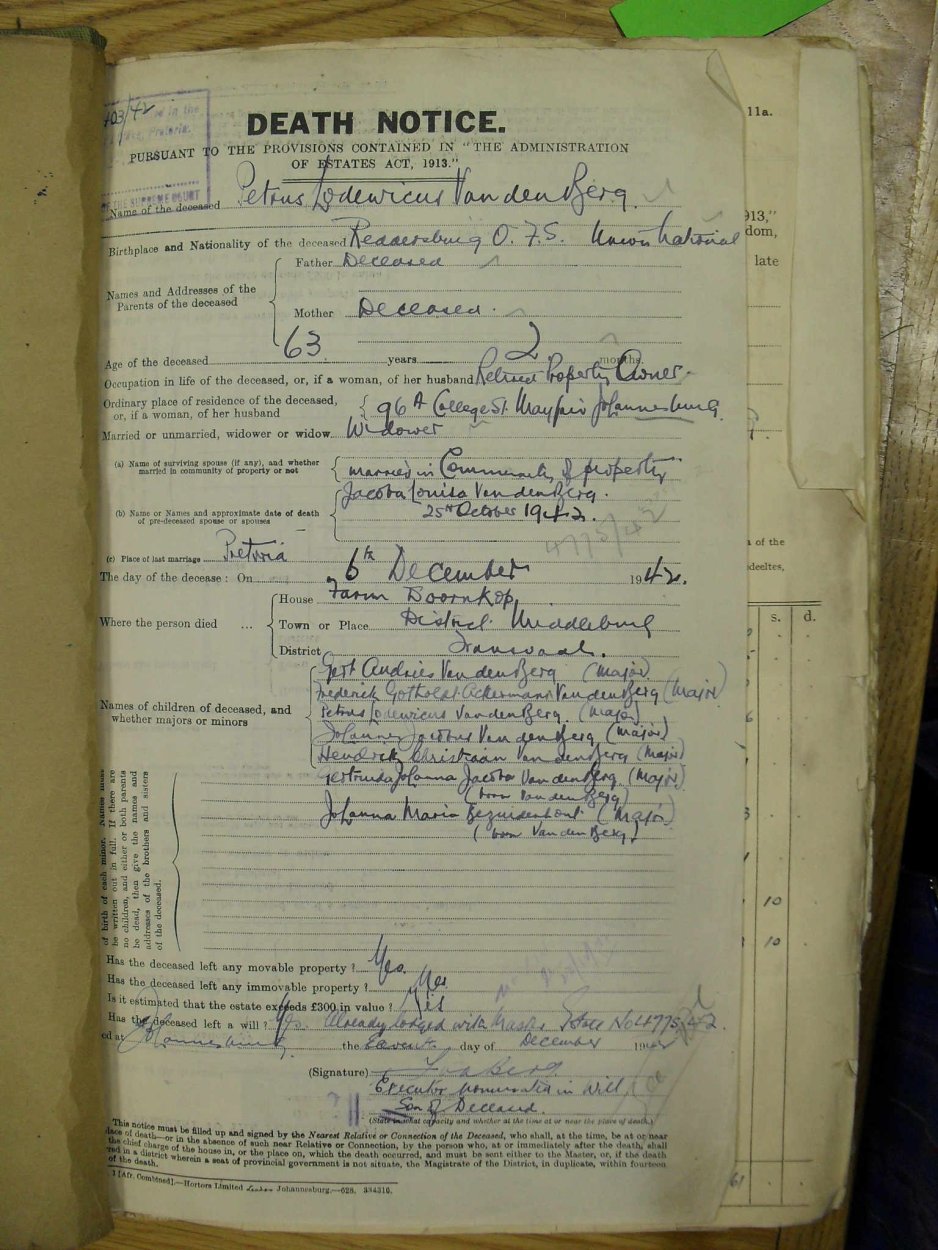 403/42
DEATH NOTICE.
PURSUANT TO THE PROVISIONS CONTAINED IN "THE ADMINISTRATION
OF ESTATES ACT, 1913."
OF THE SUPREME COURT
Name of the deceased Petrus Lodewicus Van den Berg.
Birthplace and Nationality of the deceased Reddersburg O.F.S. Union National
Names and Addresses of the Parents of the deceased
Father Deceased
Mother Deceased.
Age of the deceased 63 years 2 months.
Occupation in life of the deceased, or, if a woman, of her husband Retired Property Owner.
Ordinary place of residence of the deceased,
or, if a woman, of her husband 96A College St. Mayfair Johannesburg
Married or unmarried, widower or widow Widower
(a) Name of surviving spouse (if any), and whether
married in community of property or not married in Community of property
(b) Name or Names and approximate date of death
of pre-deceased spouse or spouses
Jacoba Louisa Van den Berg.
25th October 1942.
4775/42
(c) Place of last marriage Pretoria
The day of the decease: On 6th December 1942.
Where the person died ...
House Farm Doornkop
Town or Place District Middelburg
District Transvaal.
Names of children of deceased, and
whether majors or minors
Gert Andries Van den Berg (Major)
Frederick Gotholdt Ackermann Van den Berg (Major)
Petrus Lodewicus Van den Berg. (Major)
Johannes Jacobus Van den Berg (Major)
Hendrik Christiaan Van den Berg (Major)
Gertruida Johanna Jacoba Van den Berg (Major)
(born Van den Berg)
Johanna Maria Bezuidenhout (Major)
(born Van den Berg)
of birth of each minor. Names must
be written out in full. If there are
no children, and either or both parents
be dead, then give the names and
addresses of the brothers and sisters
of the deceased.
Has the deceased left any movable property? Yes
Has the deceased left any immovable property? Yes
Is it estimated that the estate exceeds £300 in value? Yes
Has the deceased left a will? Yes. Already lodged with Master Estate No 4775/42.
ed at Johannesburg the day of December 1942
(Signature)
Executor nominated in will
Son of Deceased.
(State in what capacity and whether at the time at or near the place of death.)
This notice must be filled up and signed by the Nearest Relative or Connection of the Deceased, who shall, at the time, be at or near
place of death—or in the absence of such near Relative or Connection, by the person who, at or immediately after the death, shall
the chief charge of the house in, or the place on, which the death occurred, and must be sent either to the Master, or, if the death
red in a district wherein a seat of provincial government is not situate, the Magistrate of the District, in duplicate, within fourteen
of the death.
1 [Afr. Combined].—Hortors Limited Johannesburg.—628, 334310.
11a.
913,"
dom,
late
a of the
deeltes,
s. d.
10
10
61